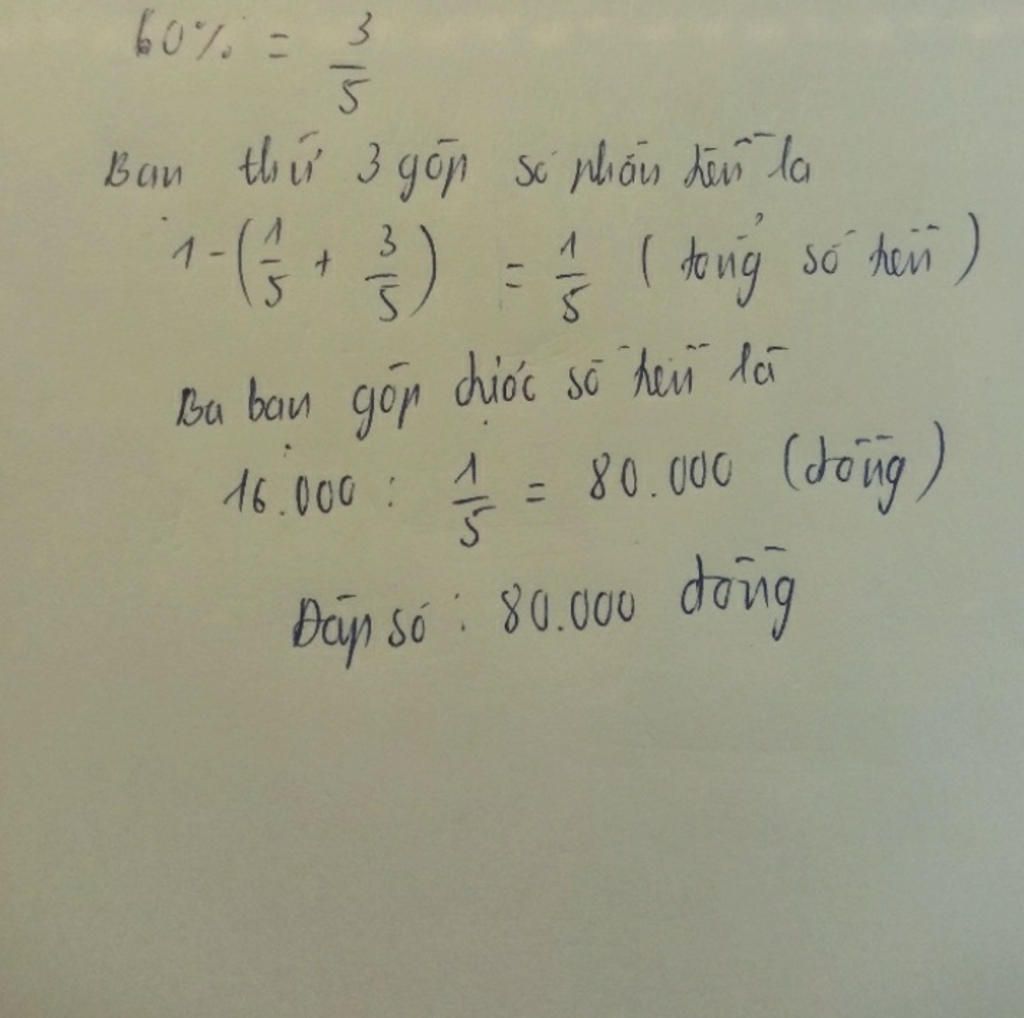 60% = 3/5
Bạn thứ 3 góp số phần tiền là
1 - (1/5 + 3/5) = 1/5 (tổng số tiền)
Ba bạn góp được số tiền là
16.000 : 1/5 = 80.000 (đồng)
Đáp số : 80.000 đồng